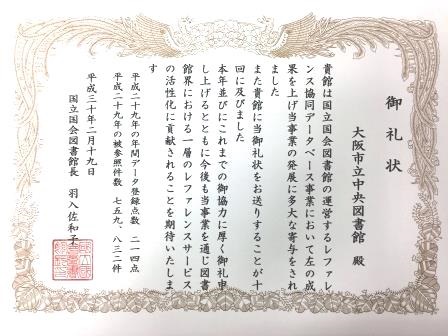 御礼状
大阪市立中央図書館 殿
貴館は国立国会図書館の運営するレファレ
ンス協同データベース事業において左の成
果を上げ当事業の発展に多大な寄与をされ
ました
また貴館に当御礼状をお送りすることが十
回に及びました
本年並びにこれまでの御協力に厚く御礼申
し上げるとともに今後も当事業を通じ図書
館界における一層のレファレンスサービス
の活性化に貢献されることを期待いたしま
す
平成二十九年の年間データ登録点数 二一四点
平成二十九年の被参照件数 七五九、八三二件
平成三十年二月十九日
国立国会図書館長 羽入佐和子